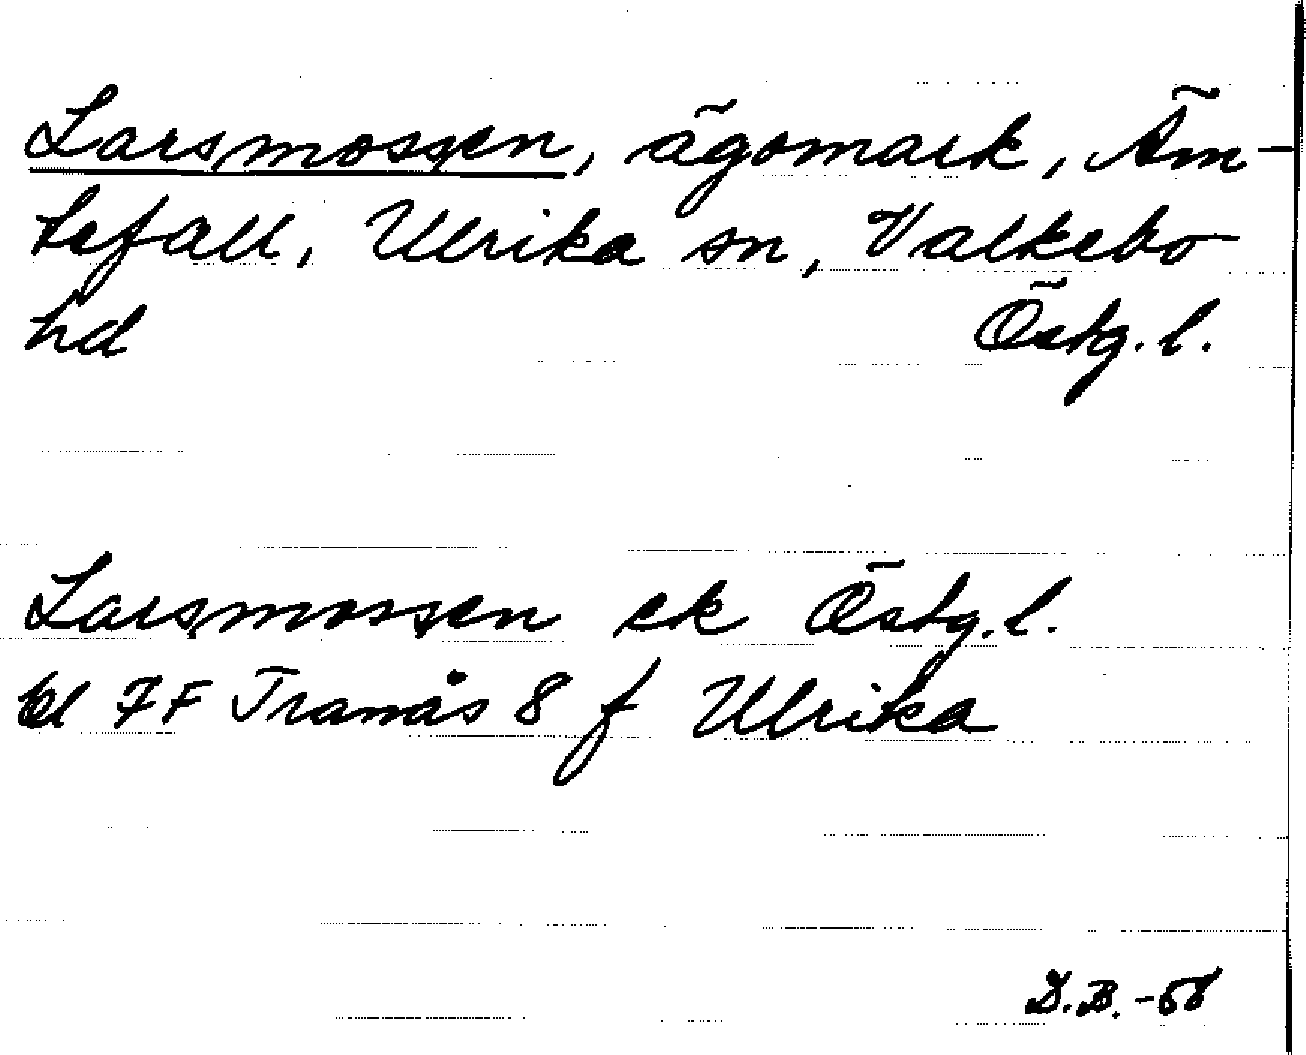 Larsmossen, ägomark, Äm-
tefall, Ulrika sn, Valkebo
hd Östg. l.
Larsmossen ek Östg. l.
bl 7F Tranås 8 f Ulrika
D.B. -58